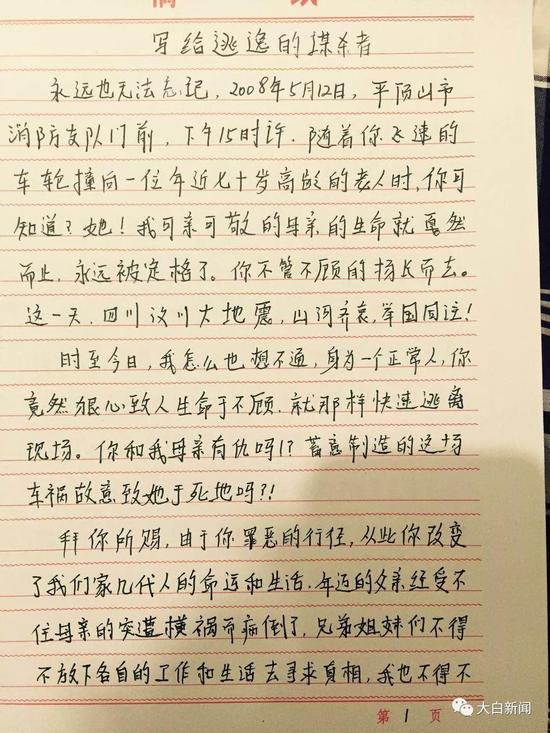 写给逃逸的谋杀者
永远也无法忘记，2008年5月12日，平顶山市
消防支队门前，下午15时许．随着你飞速的
车轮撞向一位年近七十岁高龄的老人时，你可
知道？她！我可亲可敬的母亲的生命就戛然
而止，永远被定格了。你不管不顾的扬长而去。
这一天，四川汶川大地震，山河齐哀，举国同泣！
时至今日，我怎么也想不通，身为一个正常人，你
竟然狠心致人生命于不顾．就那样快速逃离
现场。你和我母亲有仇吗！？蓄意制造的这场
车祸故意致她于死地吗？！
拜你所赐，由于你罪恶的行径，从此你改变
了我们家几代人的命运和生活．年迈的父亲经受不
住母亲的突遭横祸而病倒了，兄弟姐妹们不得
不放下各自的工作和生活去寻求真相，我也不得不
第 1 页
大白新闻